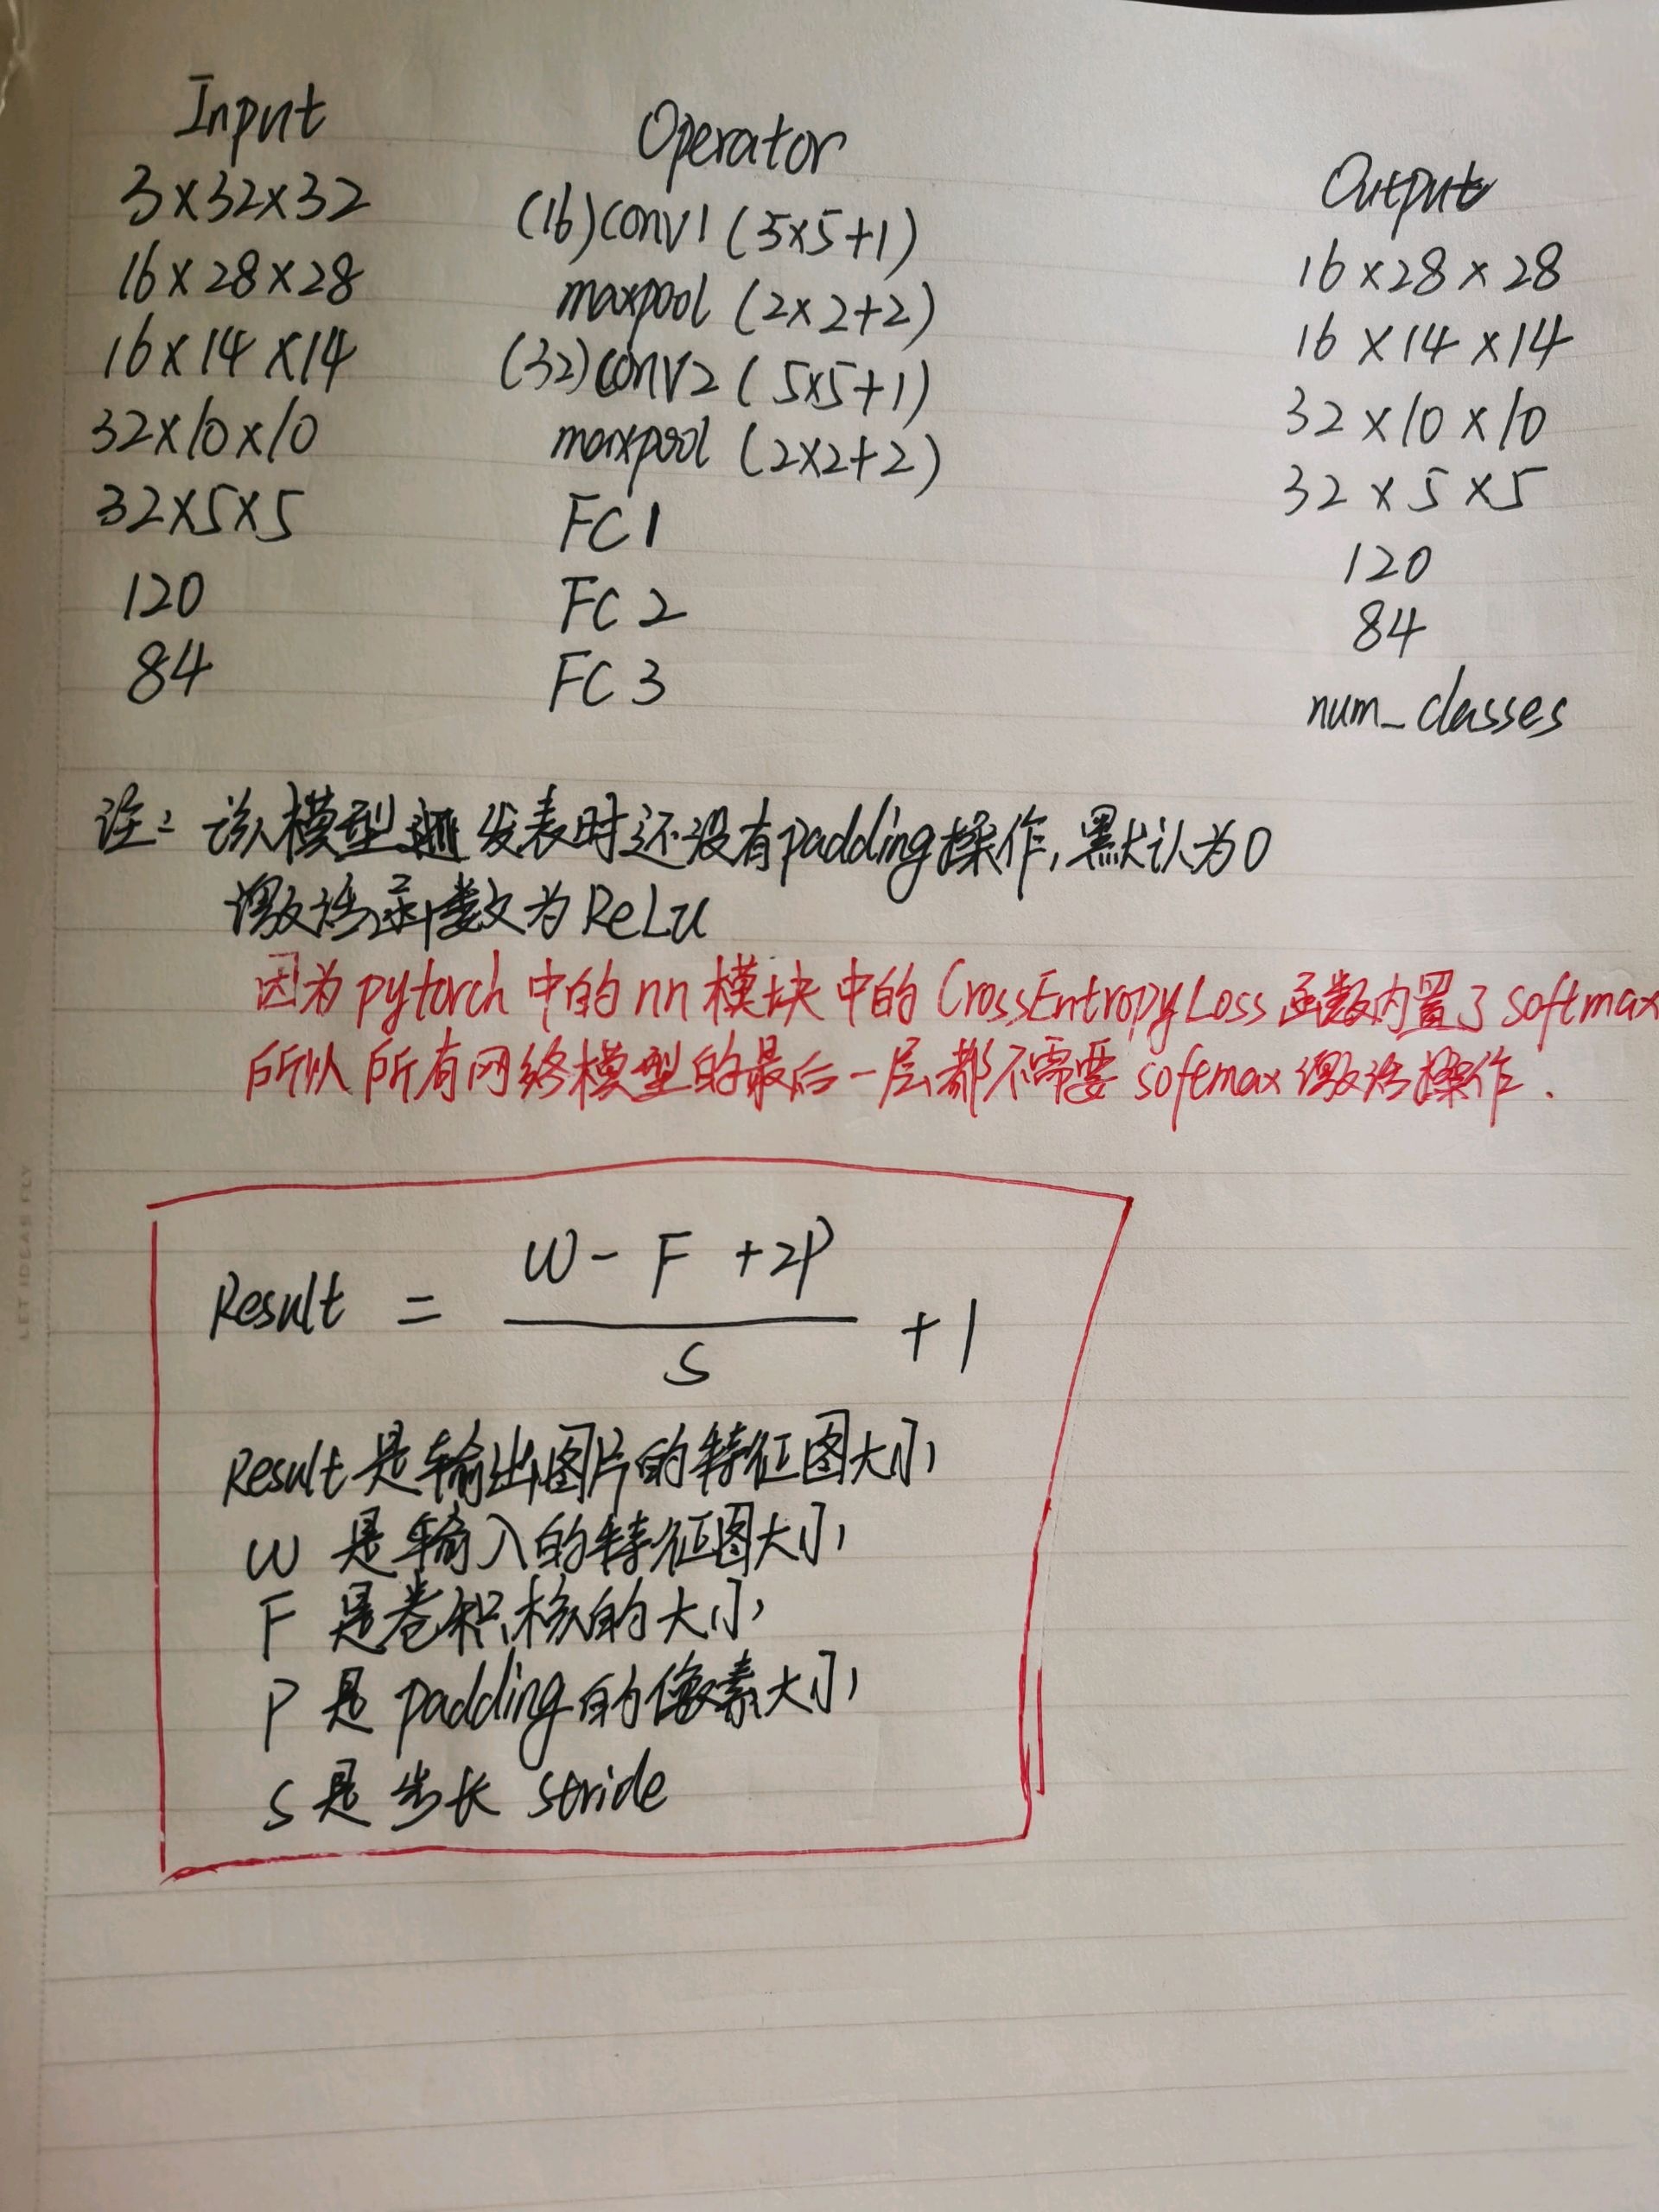 Input Operator Output
3×32×32 (16)conv1 (5×5+1) 16×28×28
16×28×28 maxpool (2×2+2) 16×14×14
16×14×14 (32)conv2 (5×5+1) 32×10×10
32×10×10 maxpool (2×2+2) 32×5×5
32×5×5 FC1 120
120 FC2 84
84 FC3 num_classes
注: 该模型发表时还没有padding操作,默认为0
激活函数为ReLu
因为pytorch中的nn模块中的CrossEntropyLoss函数内置了softmax
所以所有网络模型的最后一层都不需要softmax激活操作.
Result = (W - F + 2P) / S + 1
Result是输出图片的特征图大小
W 是输入的特征图大小
F 是卷积核的大小
P 是padding的像素大小
S是步长 stride
LET IDEAS FLY